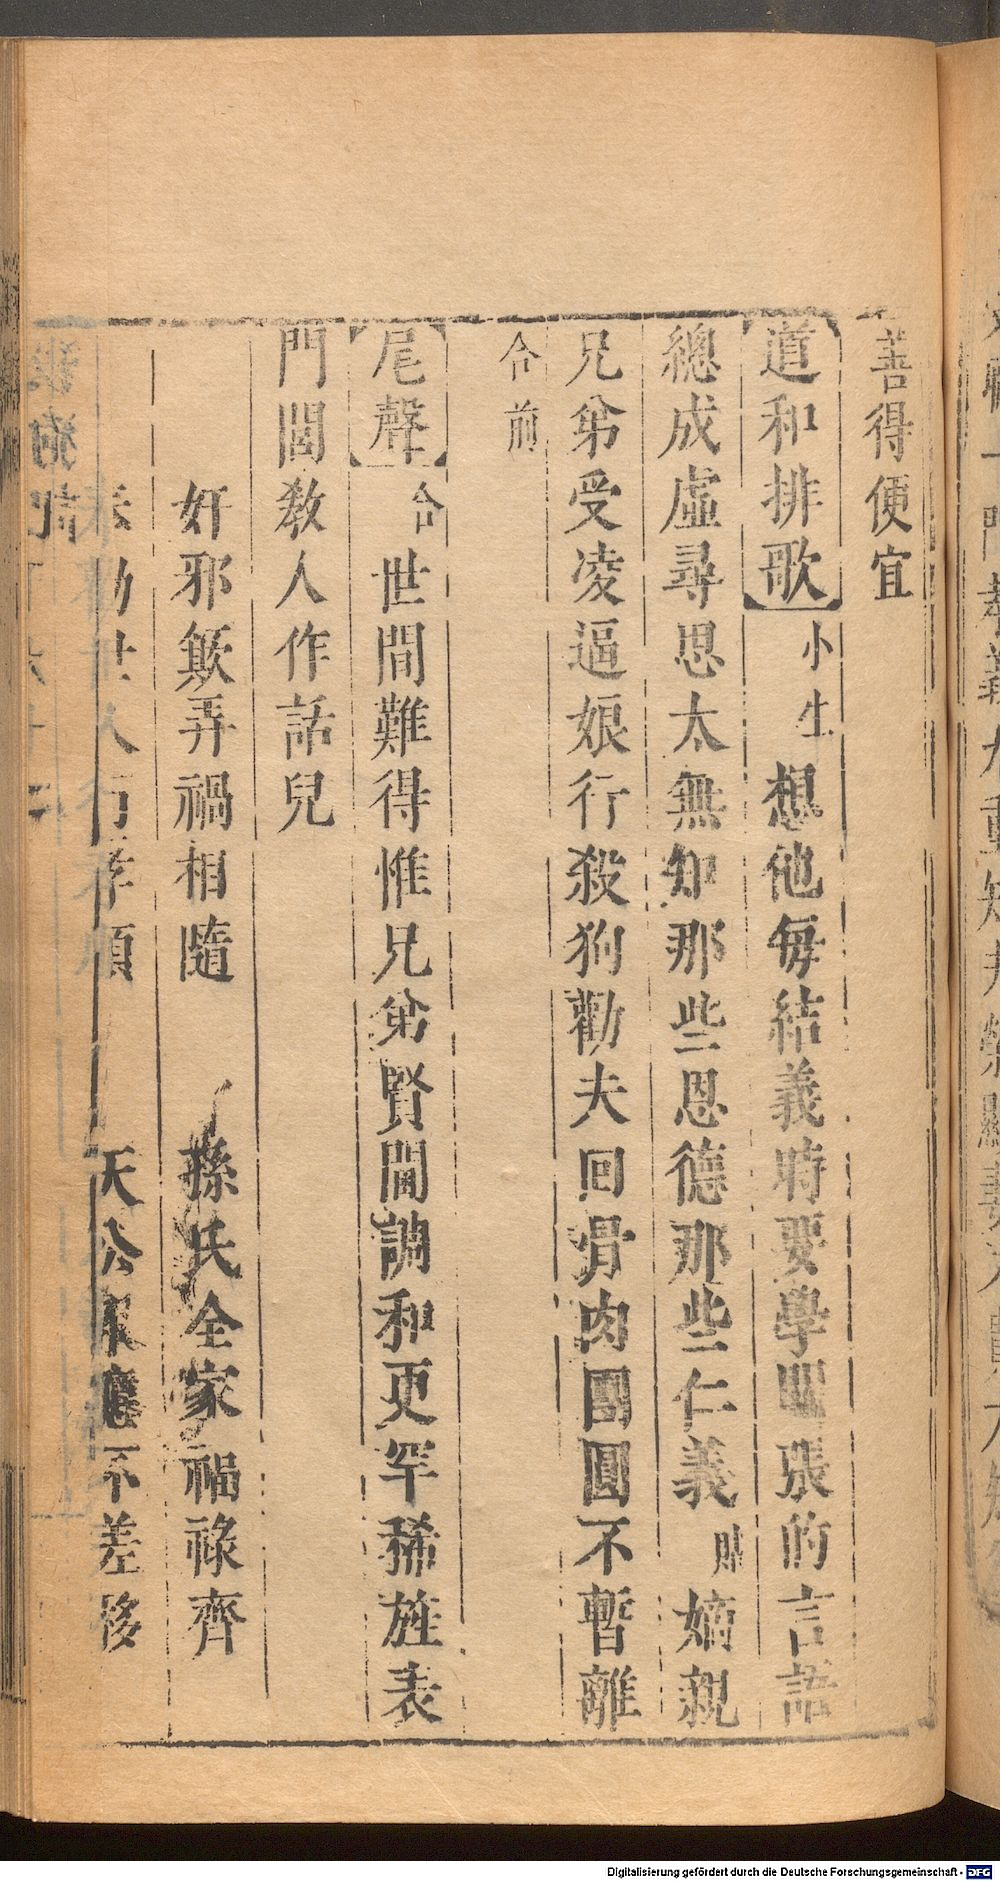 善得便宜
道和排歌 小生 想他毎結義時要學關張的言語
總成虛尋思太無知那些恩德那些仁義 貼 嫡親
兄弟受凌逼娘行殺狗勸夫回骨肉團圓不暫離
合前
尾聲 合 世間難得惟兄弟賢閫調和更罕稀旌表
門閭教人作話兒
奸邪欺弄禍相隨 孫氏全家福祿齊
勸世人行孝順 天公報應不差移
Digitalisierung gefördert durch die Deutsche Forschungsgemeinschaft - DFG